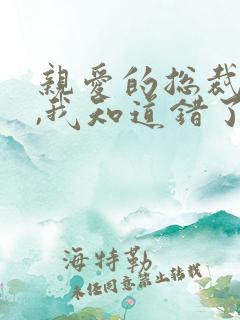 親愛的总裁
,我知道错了
海特勒
未经同意禁止转载